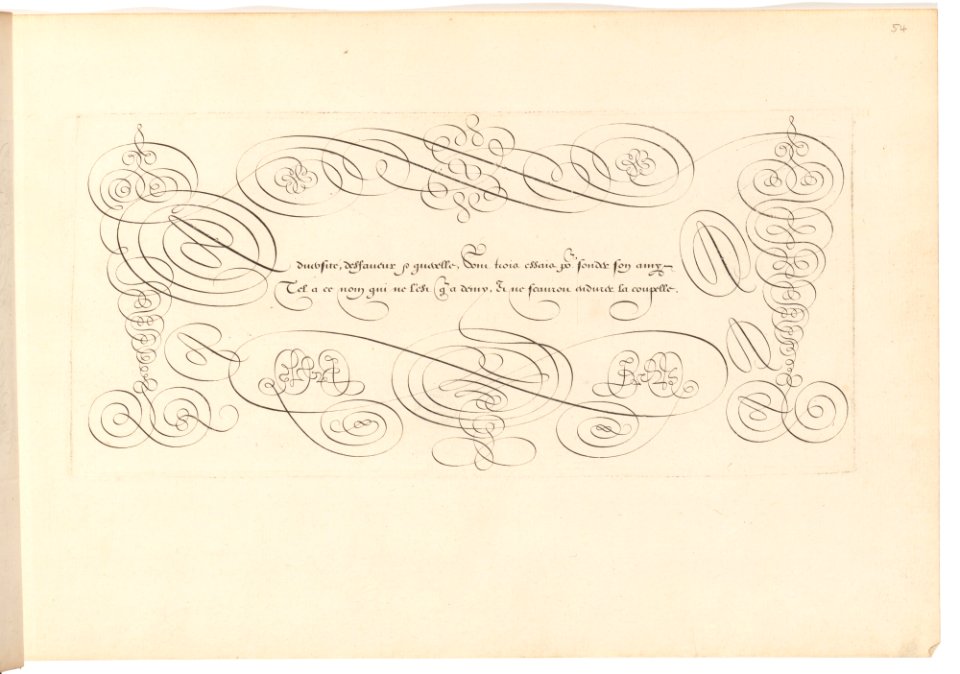 54
Aduersite, desfaueur & querelle, Sont trois essais po.r sonder son amy
Tel a ce nom qui ne l'est q̃ a demy, Et ne scauroit endurer la coupelle.